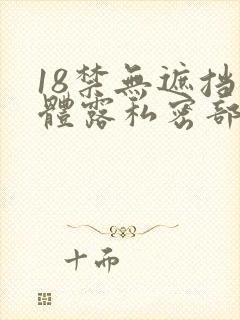 18禁無遮挡
體露私密部
十而